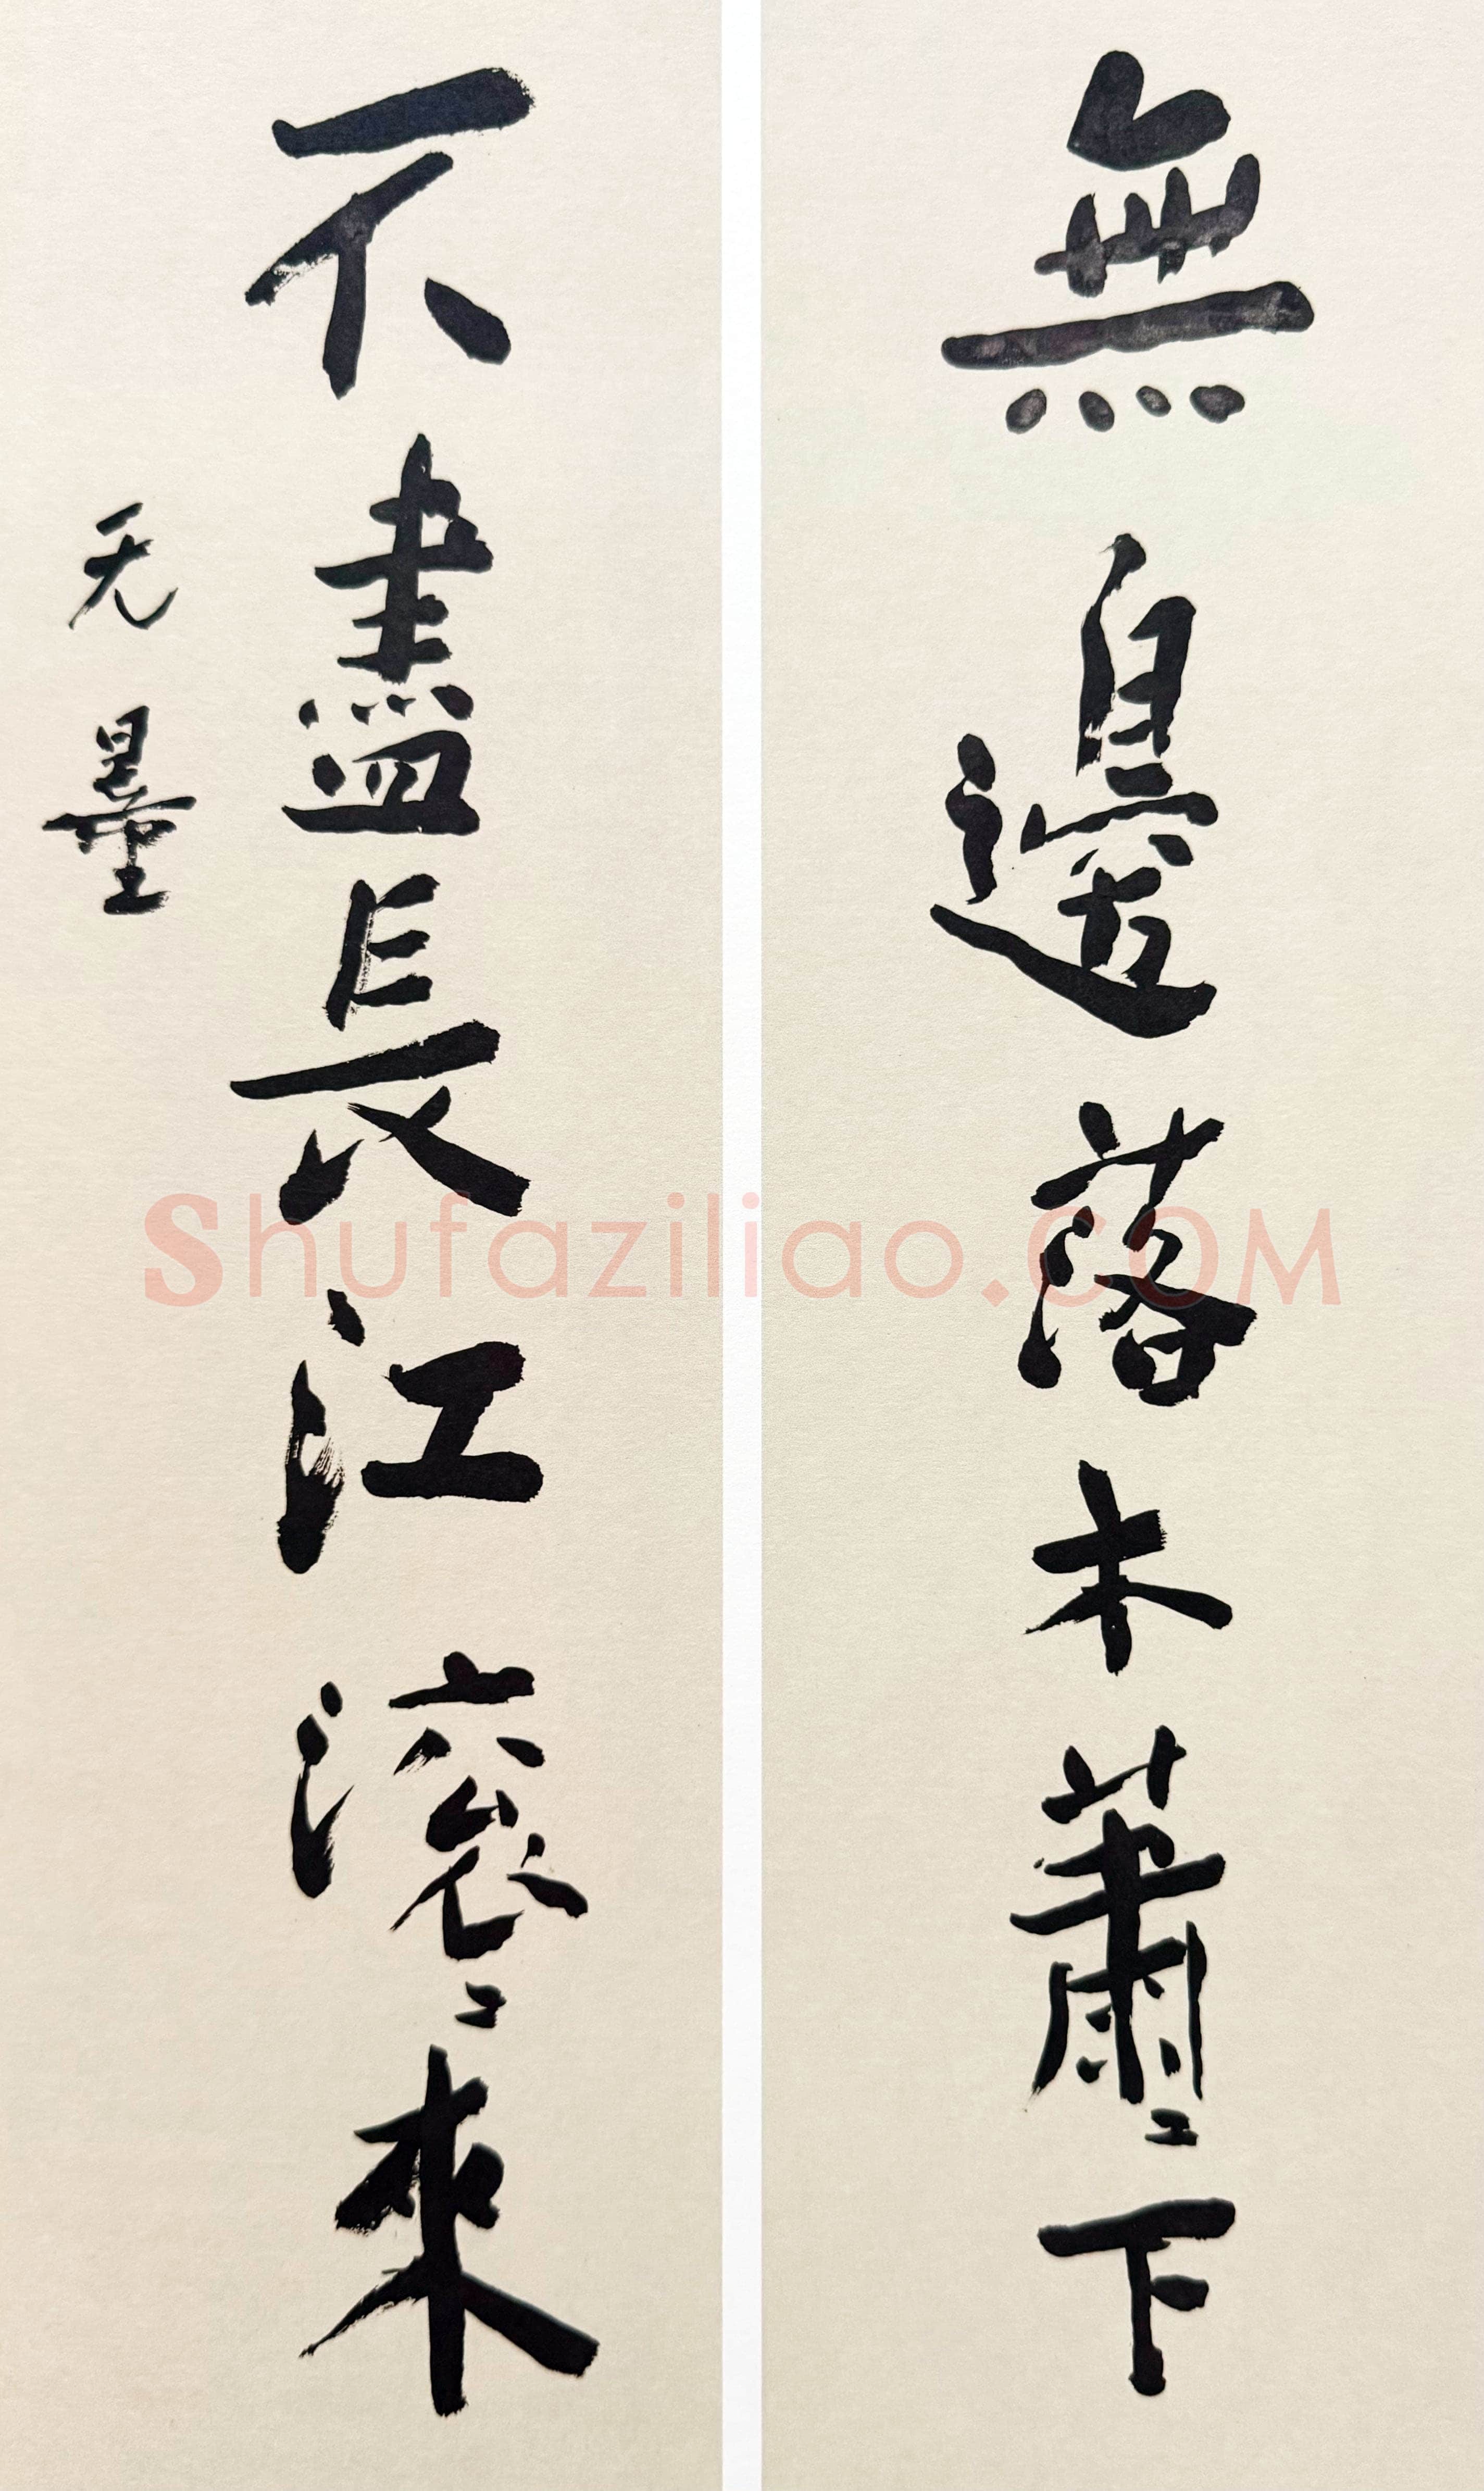 無邊落木蕭〻下
不盡長江滾〻來
无墨
Shufaziliao.COM